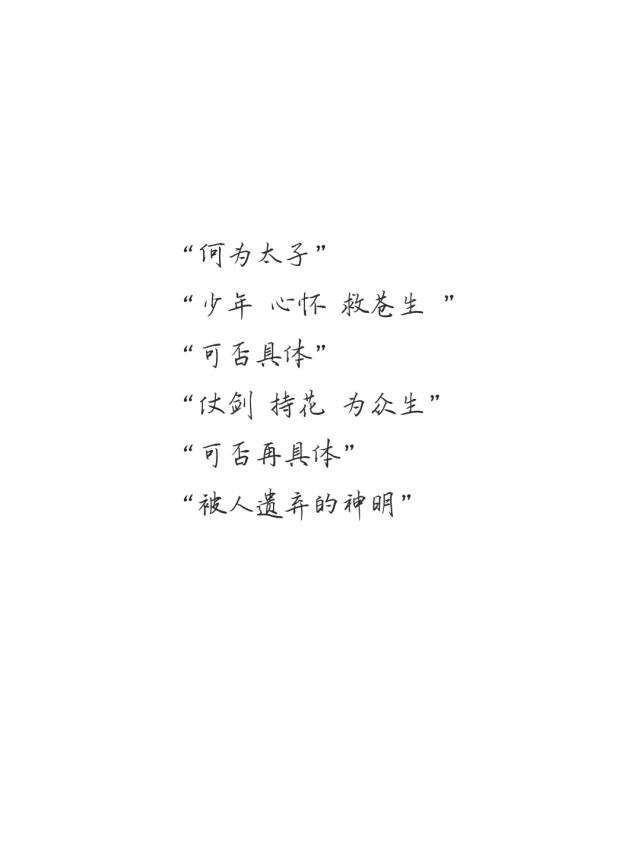 “何为太子”
“少年 心怀 救苍生 ”
“可否具体”
“仗剑 持花 为众生”
“可否再具体”
“被人遗弃的神明”